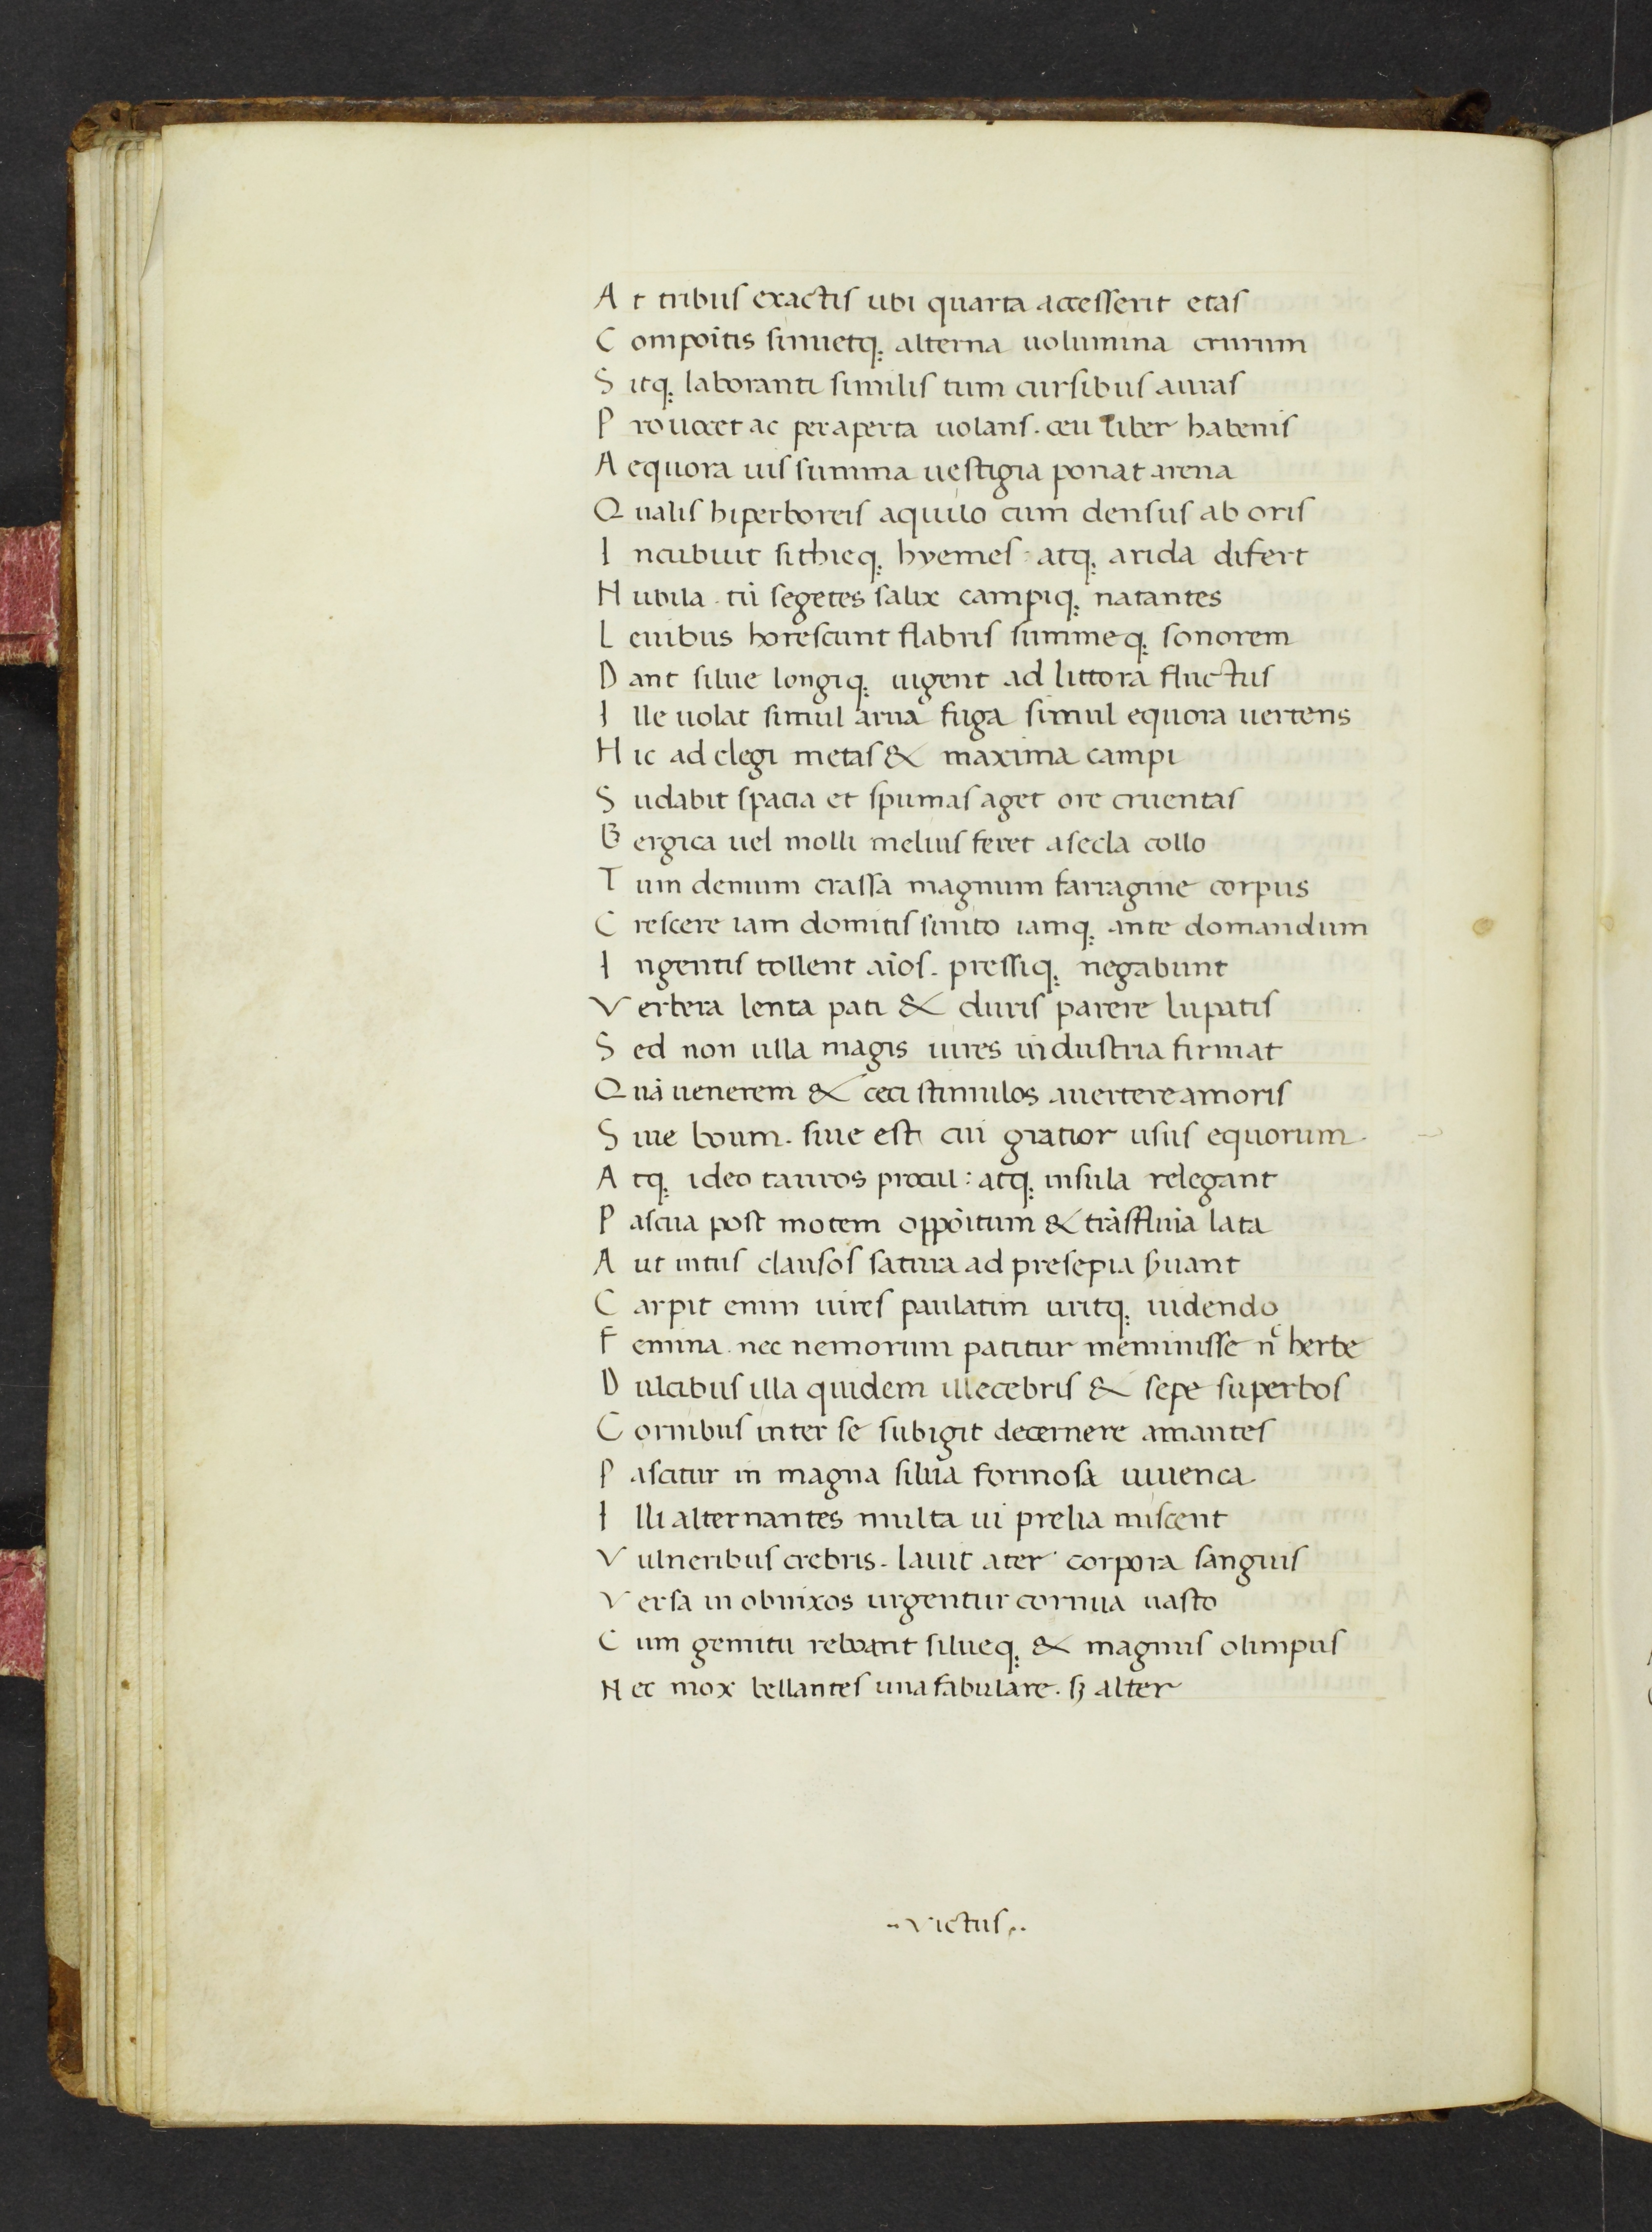 At tribus exactis ubi quarta accesserit etas
Compoitis sinuetq; alterna uolumina crurum
Sitq; laboranti similis tum cursibus auras
Prouocet ac per aperta uolans. ceu liber habenis
Aequora uis summa uestigia ponat arena
Qualis hiperboreis aquilo cum densus ab oris
Incubuit sithieq; hyemes. atq; arida difert
Hubila. tū segetes salix campiq; natantes
Leuibus horescunt flabris summeq; sonorem
Dant silue longiq; uigent ad littora fluctus
Ille uolat simul arua fuga simul equora uertens
Hic ad elegi metas & maxima campi
Sudabit spacia et spumas aget ore cruentas
Bergica uel molli melius feret asecla collo
Tum demum crassa magnum farragine corpus
Crescere iam domitis sinito iamq; ante domandum
Ingentis tollent aīos. pressiq; negabunt
Verbera lenta pati & duris parere lupatis
Sed non ulla magis uires industria firmat
Quā uenerem & ceci stimulos auertere amoris
Siue boum. siue est cui gratior usus equorum
Atq; ideo tauros procul: atq; insula relegant
Pascua post motem oppōitum & trāsfluuia lata
Aut intus clausos satura ad presepia ʃuant
Carpit enim uires paulatim uritq; uidendo
Femina. nec nemorum patitur meminisse nͨ herbe
Dulcibus illa quidem illecebris & sepe superbos
Cornibus inter se subigit decernere amantes
Pascitur in magna silua formosa iuuenca
Illi alternantes multa ui prelia miscent
Vulneribus crebris. lauit ater corpora sanguis
Versa in obnixos urgentur cornua uasto
Cum gemitu reboant silueq; & magnus olimpus
Nec mox bellantes una fabulare. sꝫ alter
..Victus..